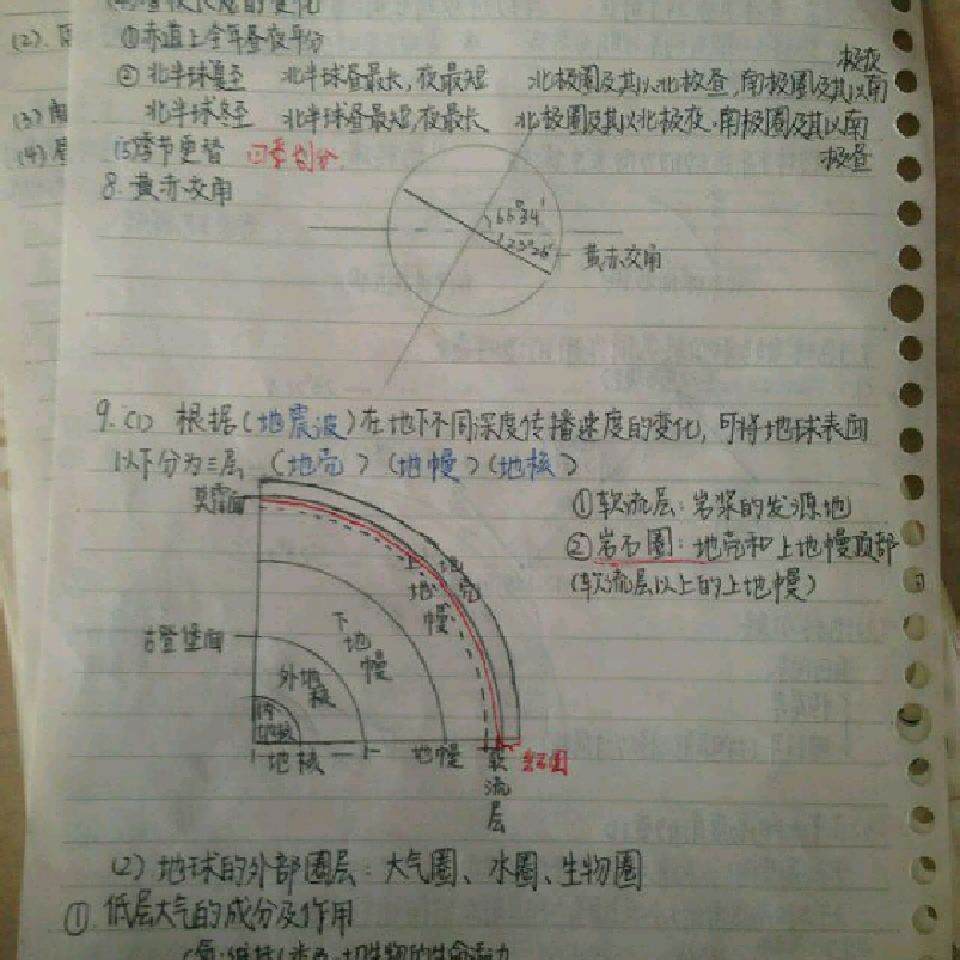 (4)昼夜长短的变化
①赤道上全年昼夜平分
②北半球夏至 北半球昼最长,夜最短 北极圈及其以北极昼,南极圈及其以南极夜
北半球冬至 北半球昼最短,夜最长 北极圈及其以北极夜.南极圈及其以南极昼
(5)季节更替 四季划分
8.黄赤交角
66°34′
23°26′
黄赤交角
9.(1) 根据(地震波)在地下不同深度传播速度的变化,可将地球表面
以下分为三层 (地壳)(地幔)(地核)
莫霍面
①软流层:岩浆的发源地
②岩石圈:地壳和上地幔顶部
(软流层以上的上地幔)
上地幔
地壳
下地幔
古登堡面
外地核
内地核
地核
地幔
软流层
岩石圈
(2)地球的外部圈层:大气圈、水圈、生物圈
①低层大气的成分及作用
(2).
(3)
(4).